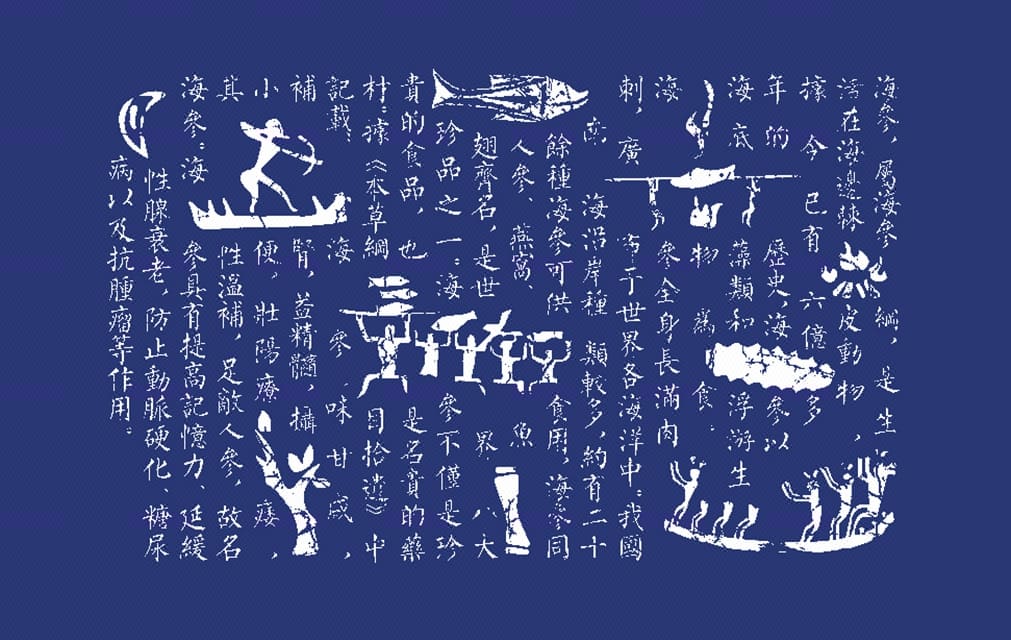 海參，屬海參綱，是生
活在海邊棘皮動物，
據今已有六億多
年的歷史，海參以
海底藻類和浮游生
物為食。
海參全身長滿肉
刺，廣布于世界各海洋中：我國
南海沿岸種類較多，約有二十
餘種海參可供食用，海參同
人參、燕窩、魚
翅齊名，是世界八大
珍品之一：海參不僅是珍
貴的食品，也是名貴的藥
材：據《本草綱目拾遺》中
記載，海參，味甘咸，
補腎，益精髓，攝
小便，壯陽療痿，
其性溫補，足敵人參，故名
海參：海參具有提高記憶力、延緩
性腺衰老，防止動脈硬化、糖尿
病以及抗腫瘤等作用。